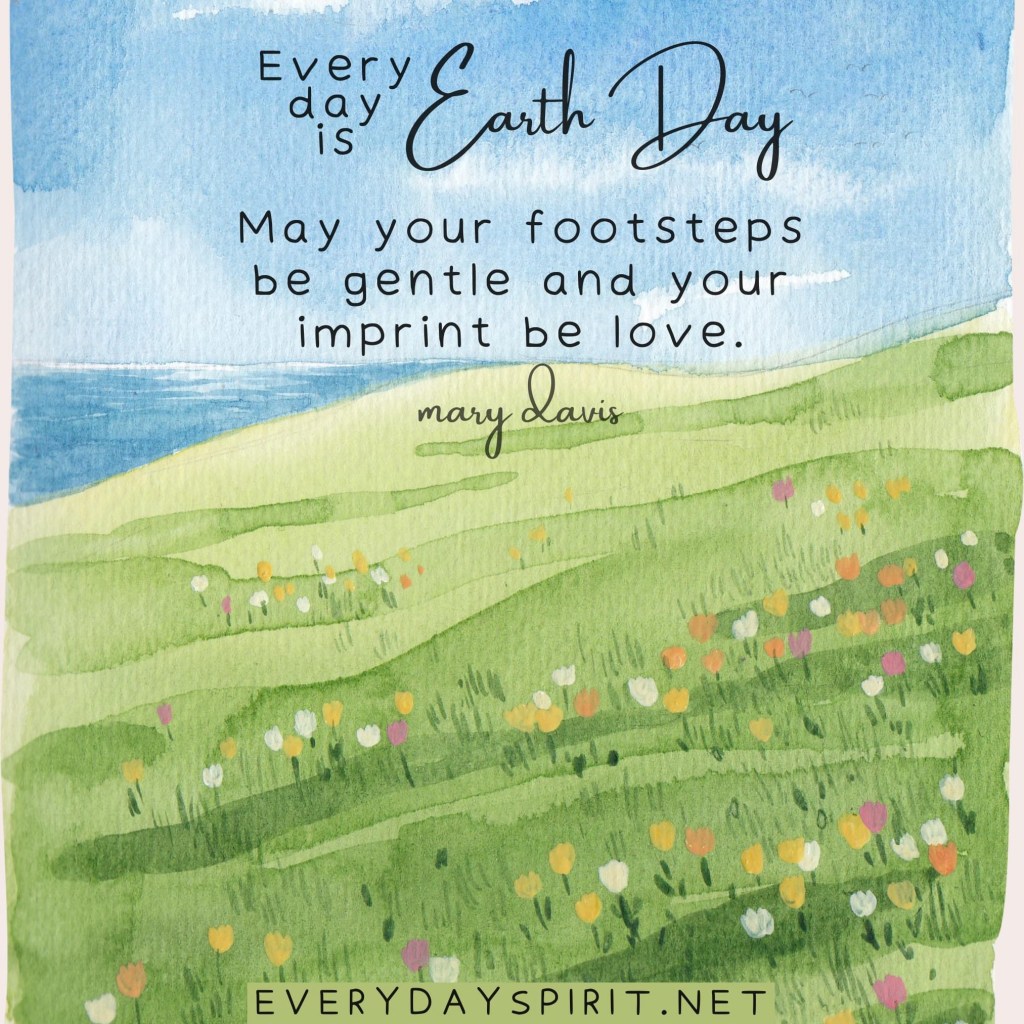 Every
day
is
Earth Day
May your footsteps
be gentle and your
imprint be love.
mary davis
EVERYDAYSPIRIT.NET